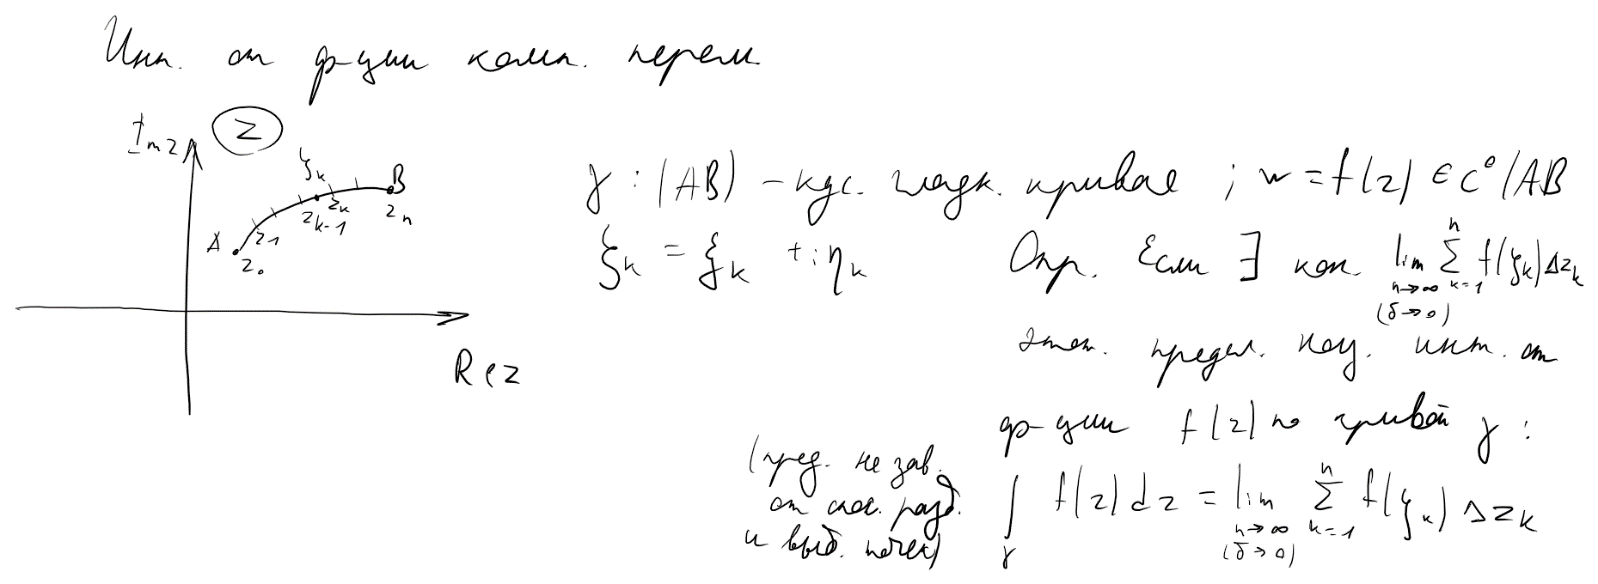 Инт. от ф-ции комп. перем
Im z
Z
ζk
B
zk
zk-1
zn
A
z1
z0
Re z
γ : (AB) – кус. гладк. кривая ; w = f(z) ∈ C⁰(AB
ζk = ξk + iηk
Опр. Если ∃ кон. lim n→∞ (δ→0) Σ k=1 n f(ζk) Δzk
этот. предел. наз. инт. от
ф-ции f(z) по кривой γ :
(пред. не зав.
от спос. разб.
и выб. точек)
∫γ f(z) dz = lim n→∞ (δ→0) Σ k=1 n f(ζk) Δzk